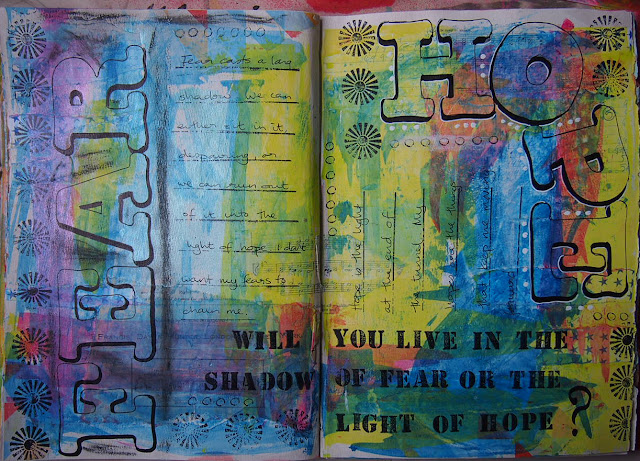 FEAR
Fear casts a long
shadow we can
either sit in it,
despairing, or
we can run out
of it into the
light of hope. I don't
want my fears to
chain me.
HOPE
Hope is the light
at the end of
the tunnel. My
are the things
that keep me moving
WILL YOU LIVE IN THE
SHADOW OF FEAR OR THE
LIGHT OF HOPE?